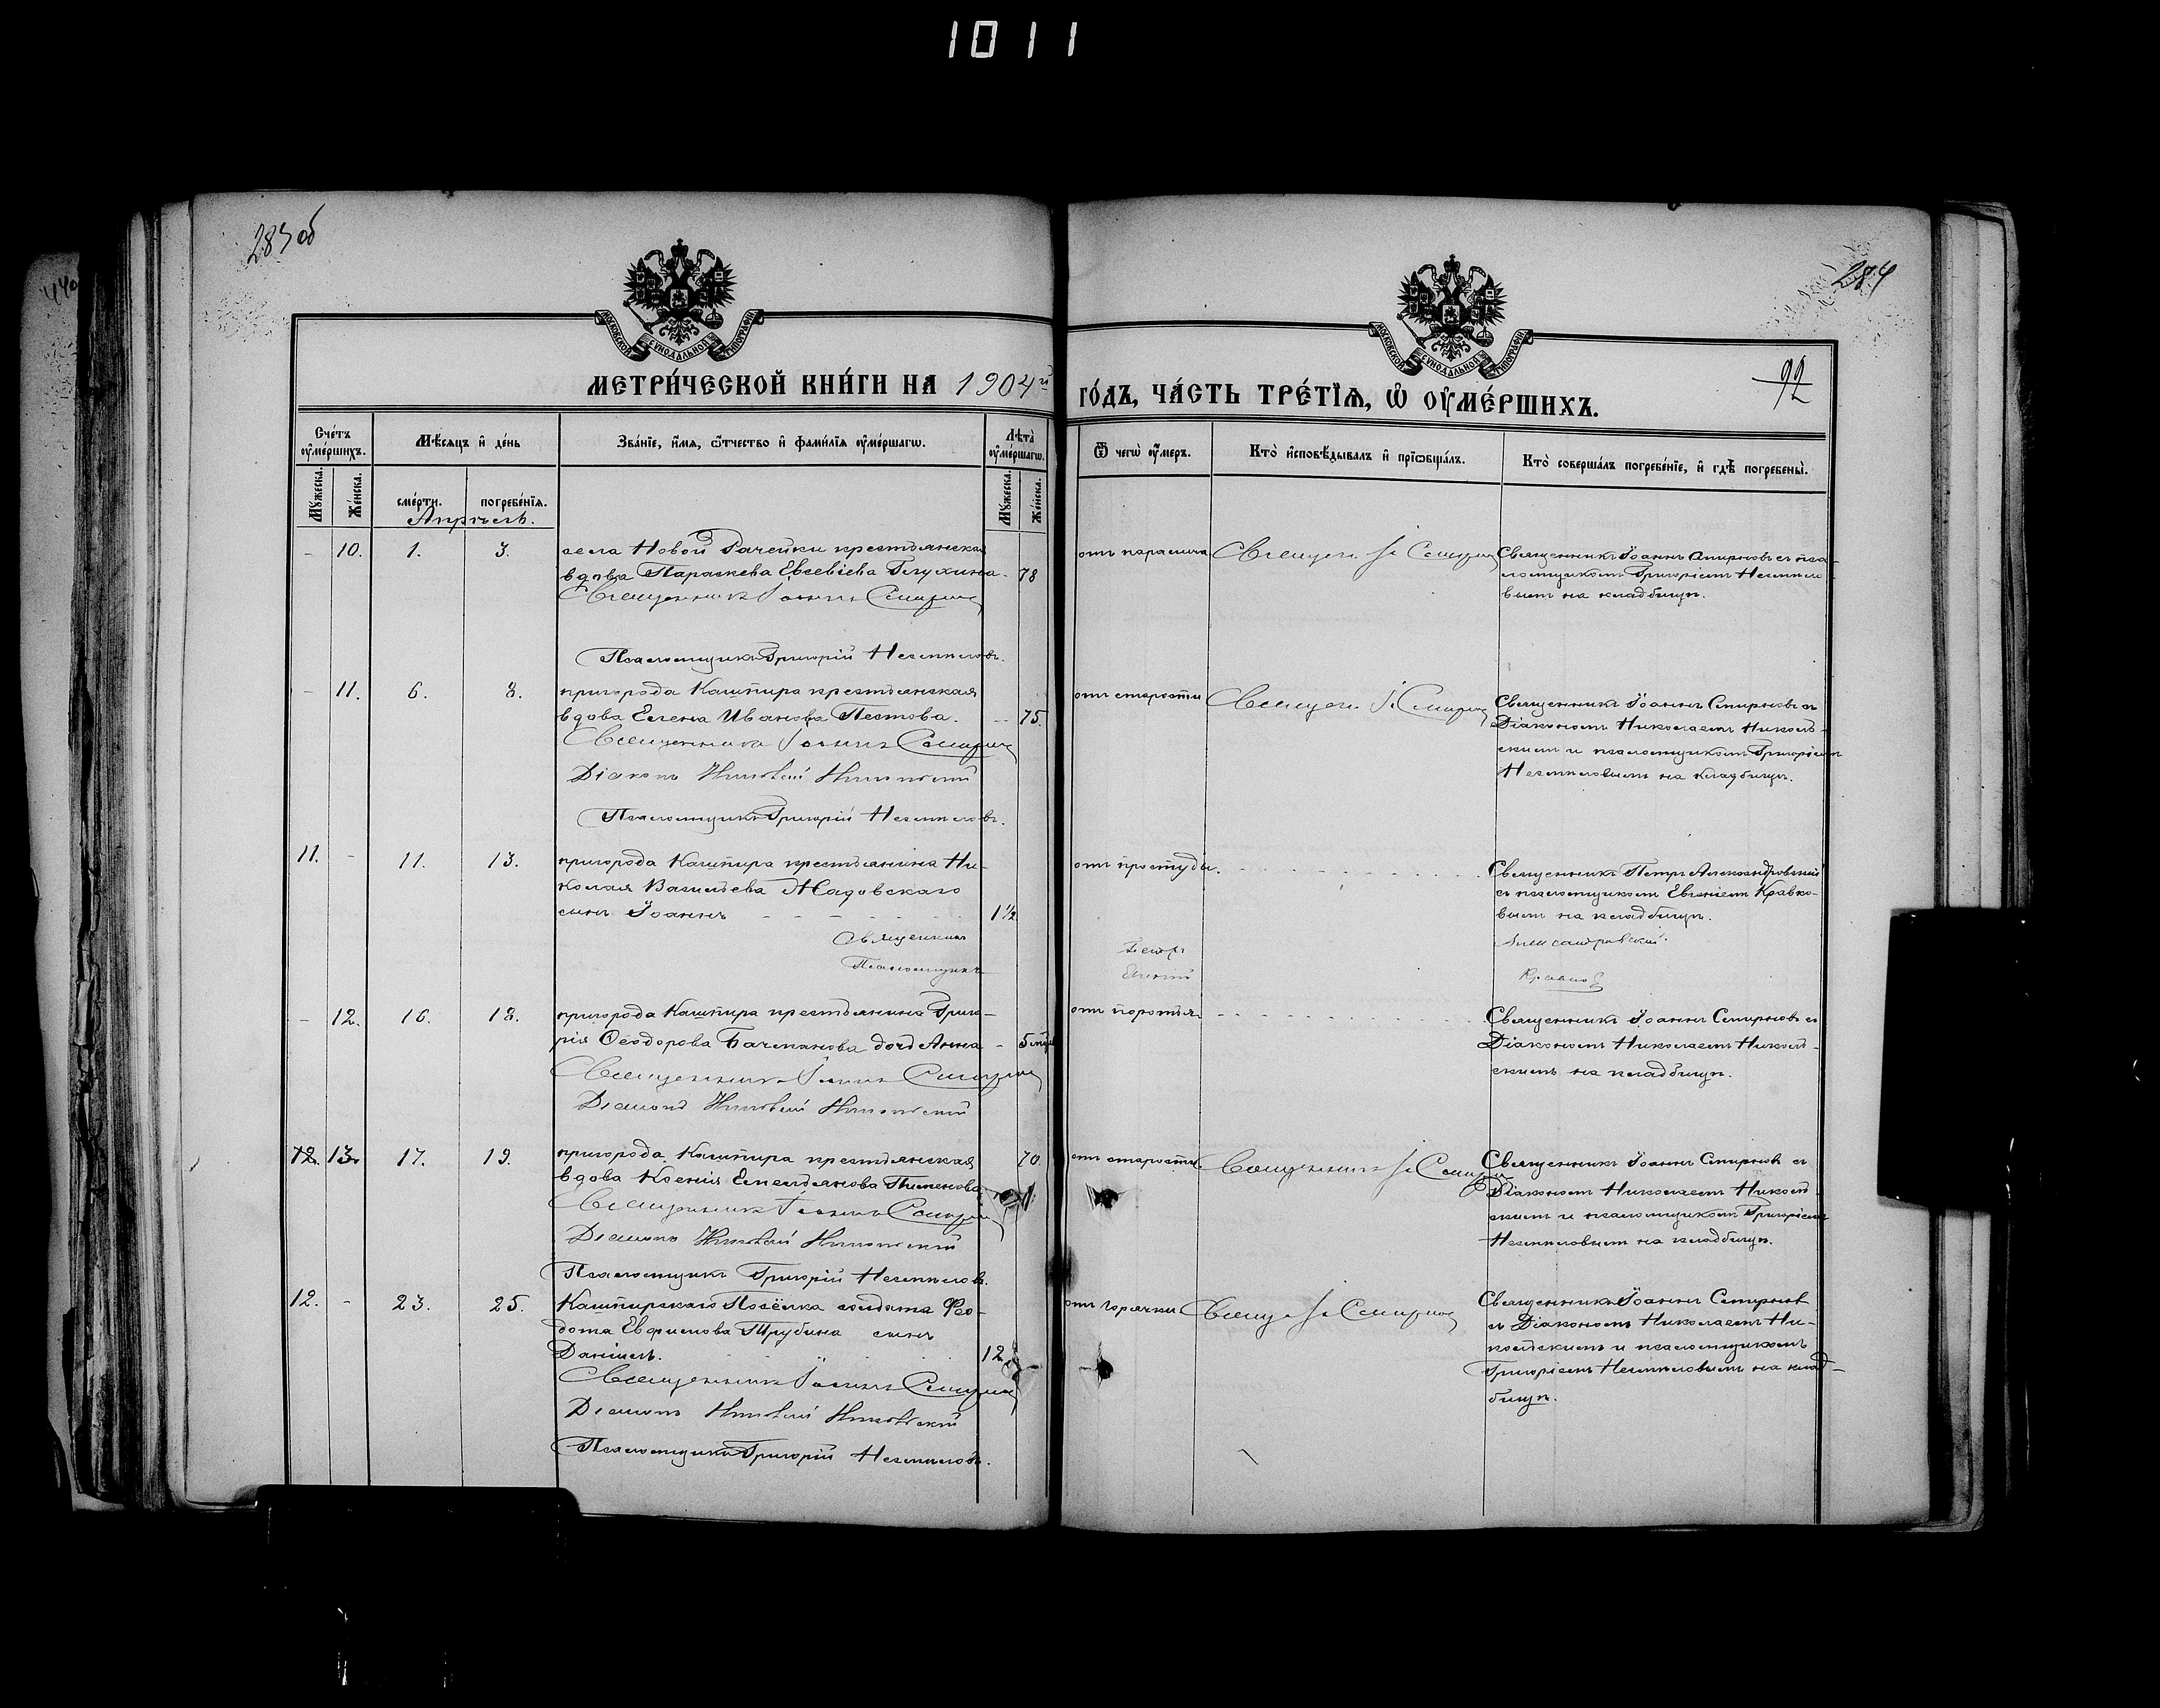 1011
283 об
284
440
МОСКОВСКОЙ СУНОДАЛЬНОЙ ТИПОГРАФИИ
МОСКОВСКОЙ СУНОДАЛЬНОЙ ТИПОГРАФИИ
МЕТРИ́ЧЕСКОЙ КНИ́ГИ НА 1904й
ГО́ДЪ, ЧА́СТЬ ТРЕ́ТІѦ, Ѡ҆ ОУ҆МЕ́РШИХЪ.
92
Сче́тъ оу҆ме́ршихъ.
Мꙋжеска.
Же́нска.
Мѣ́сѧцъ и҆ де́нь
сме́рти.
погребе́нїѧ.
Зва́нїе, и҆́мѧ, ѻ҆́тчество и҆ фами́лїѧ оу҆ме́ршагѡ.
Лѣ́та оу҆ме́ршагѡ.
Мꙋжеска.
Же́нска.
Ѿ чегѡ̀ оу҆́меръ.
Кто̀ и҆сповѣ́дывалъ и҆ прїѡбща́лъ.
Кто̀ соверша́лъ погребе́нїе, и҆ гдѣ̀ погребены̀.
Апрѣль.
- 10. 1. 3.
села Новой Рачейки крестьянская
вдова Параскева Евсевіева Глухина - 78
Священникъ Іоаннъ Смирновъ
Псаломщикъ Григорій Несмѣловъ.
отъ паралича
Священ. І. Смирновъ
Священникъ Іоаннъ Смирновъ съ пса-
ломщикомъ Григоріемъ Несмѣло-
вымъ на кладбищѣ.
- 11. 6. 8.
пригорода Кашпира крестьянская
вдова Елена Иванова Пестова. - 75.
Священникъ Іоаннъ Смирновъ
Діаконъ Николай Никольскій
Псаломщикъ Григорій Несмѣловъ.
отъ старости
Священ. І. Смирновъ
Священникъ Іоаннъ Смирновъ съ
Діакономъ Николаемъ Николь-
скимъ и псаломщикомъ Григоріемъ
Несмѣловымъ на кладбищѣ.
11. - 11. 13.
пригорода Кашпира крестьянина Ни-
колая Васильева Жадовскаго
сынъ Іоаннъ 1½
Священникъ
Псаломщикъ
отъ простуды.
Петръ
Евгеній
Священникъ Петръ Александровскій
съ псаломщикомъ Евгеніемъ Кравко-
вымъ на кладбищѣ.
Александровскій.
Кравковъ
- 12. 16. 18.
пригорода Кашпира крестьянина Григо-
рія Ѳеодорова Бачманова дочь Анна - 5
Священникъ Іоаннъ Смирновъ
Діаконъ Николай Никольскій
Священникъ Іоаннъ Смирновъ съ
Діакономъ Николаемъ Николь-
скимъ на кладбищѣ.
12. 13. 17. 19.
пригорода Кашпира крестьянская 70
вдова Ксенія Емельянова Пименова
Священникъ Іоаннъ Смирновъ
Діаконъ Николай Никольскій
Псаломщикъ Григорій Несмѣловъ.
отъ старости
Священникъ І. Смирновъ
Священникъ Іоаннъ Смирновъ съ
Діакономъ Николаемъ Николь-
скимъ и псаломщикомъ Григоріемъ
Несмѣловымъ на кладбищѣ.
12. - 23. 25.
Кашпирскаго Посёлка солдата Фео-
дота Евфимова Трубина сынъ
Даніилъ. 12
Священникъ Іоаннъ Смирновъ
Діаконъ Николай Никольскій
Псаломщикъ Григорій Несмѣловъ.
отъ горячки
Священ. І. Смирновъ
Священникъ Іоаннъ Смирновъ
съ Діакономъ Николаемъ Ни-
кольскимъ и псаломщикомъ
Григоріемъ Несмѣловымъ на клад-
бищѣ.